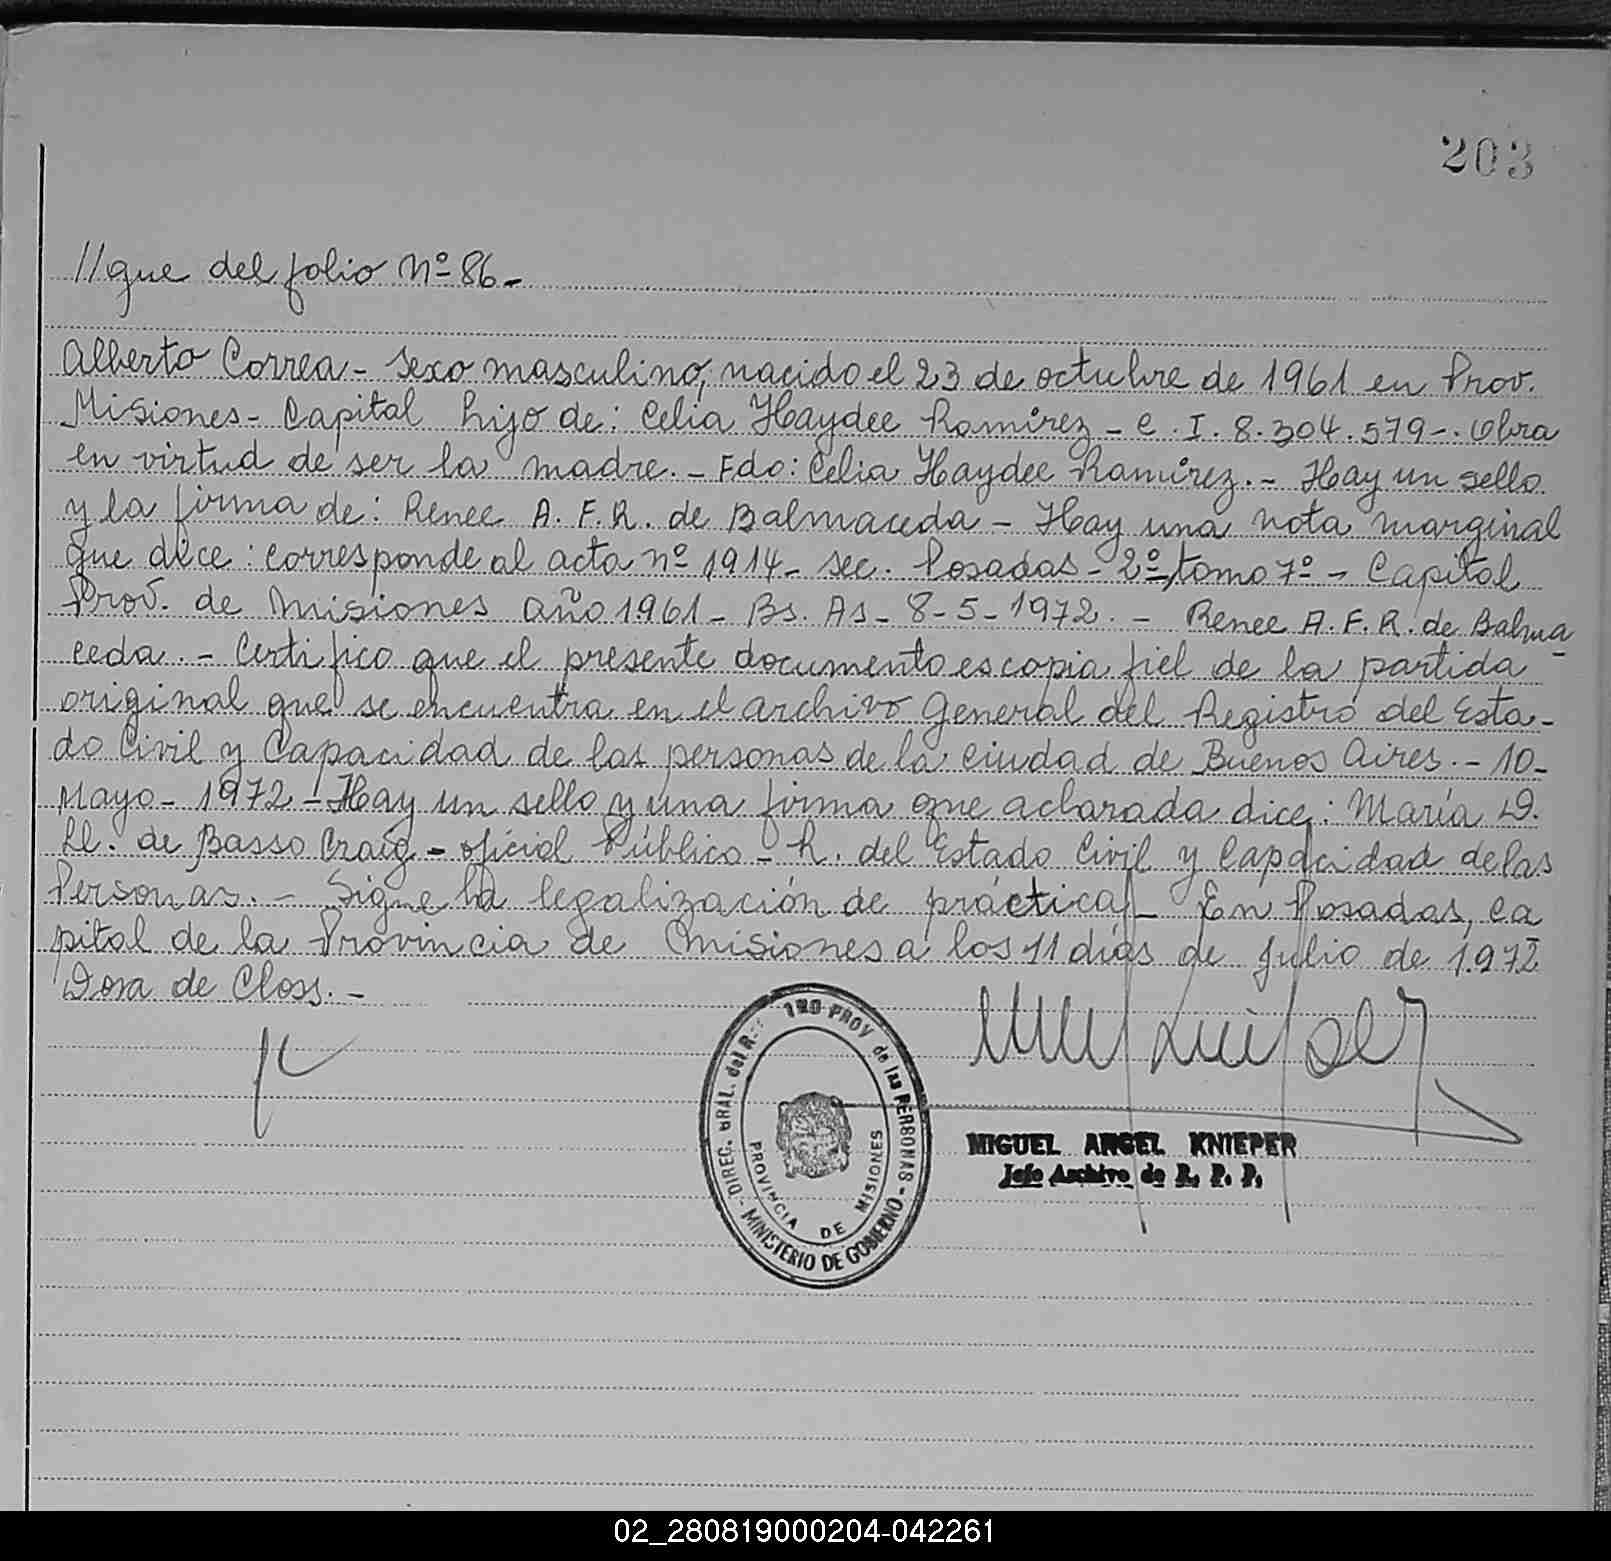 203
//gue del folio Nº 86-
Alberto Correa - sexo masculino, nacido el 23 de octubre de 1961 en Prov.
Misiones - Capital hijo de: Celia Haydee Ramírez - C. I. 8.304.579-. Obra
en virtud de ser la madre. - Fdo: Celia Haydee Ramírez. - Hay un sello
y la firma de: Renee A. F. R. de Balmaceda - Hay una nota marginal
que dice: corresponde al acta nº 1914 - sec. Posadas - 2º, tomo 7º - Capital
Prov. de Misiones año 1961 - Bs. As - 8-5-1972. - Renee A. F. R. de Balma
ceda. - Certifico que el presente documento es copia fiel de la partida
original que se encuentra en el archivo General del Registro del Esta-
do Civil y Capacidad de las personas de la ciudad de Buenos Aires. - 10-
Mayo - 1972 - Hay un sello y una firma que aclarada dice: María D.
Ll. de Basso Craig - oficial Público - R. del Estado Civil y Capacidad de las
Personas. - Sigue la legalización de práctica - En Posadas, ca
pital de la Provincia de Misiones a los 11 días de Julio de 1.972
Dora de Closs. -
DIREC. GRAL. del R. PROV de las PERSONAS - MINISTERIO DE GOBIERNO -
PROVINCIA DE MISIONES
MIGUEL ANGEL KNIEPER
Jefe Archivo de R. P. P.
02_280819000204-042261